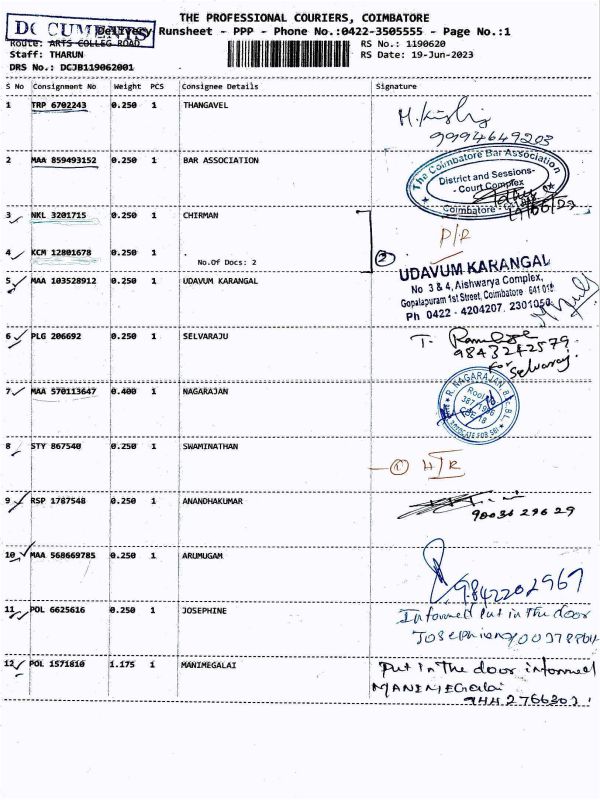 THE PROFESSIONAL COURIERS, COIMBATORE
DOCUMENTS
Delivery Runsheet - PPP - Phone No.:0422-3505555 - Page No.:1
Route: ARTS COLLEG ROAD
RS No.: 1190620
Staff: THARUN
RS Date: 19-Jun-2023
DRS No.: DCJB119062001
S No Consignment No Weight PCS Consignee Details Signature
1 TRP 6702243 0.250 1 THANGAVEL
9994649203
2 MAA 859493152 0.250 1 BAR ASSOCIATION
The Coimbatore Bar Association
District and Sessions-
- Court Complex
Coimbatore -
3 NKL 3201715 0.250 1 CHIRMAN
P/R
4 KCM 12801678 0.250 1 .
No.Of Docs: 2
2
5 MAA 103528912 0.250 1 UDAVUM KARANGAL
UDAVUM KARANGAL
No 3 & 4, Aishwarya Complex,
Gopalapuram 1st Street, Coimbatore 641 018
Ph 0422 - 4204207, 2301050
6 PLG 206692 0.250 1 SELVARAJU
9843242579
for Selvaraj.
7 MAA 570113647 0.400 1 NAGARAJAN
R. NAGARAJAN
387/1986
ADVOCATE FOR SBI
8 STY 867540 0.250 1 SWAMINATHAN
1 H/R
9 RSP 1787548 0.250 1 ANANDHAKUMAR
10 MAA 568669785 0.250 1 ARUMUGAM
9842202967
11 POL 6625616 0.250 1 JOSEPHINE
Informed put in the door
12 POL 1571810 1.175 1 MANIMEGALAI
Put in the door informed
MANIMEGalai